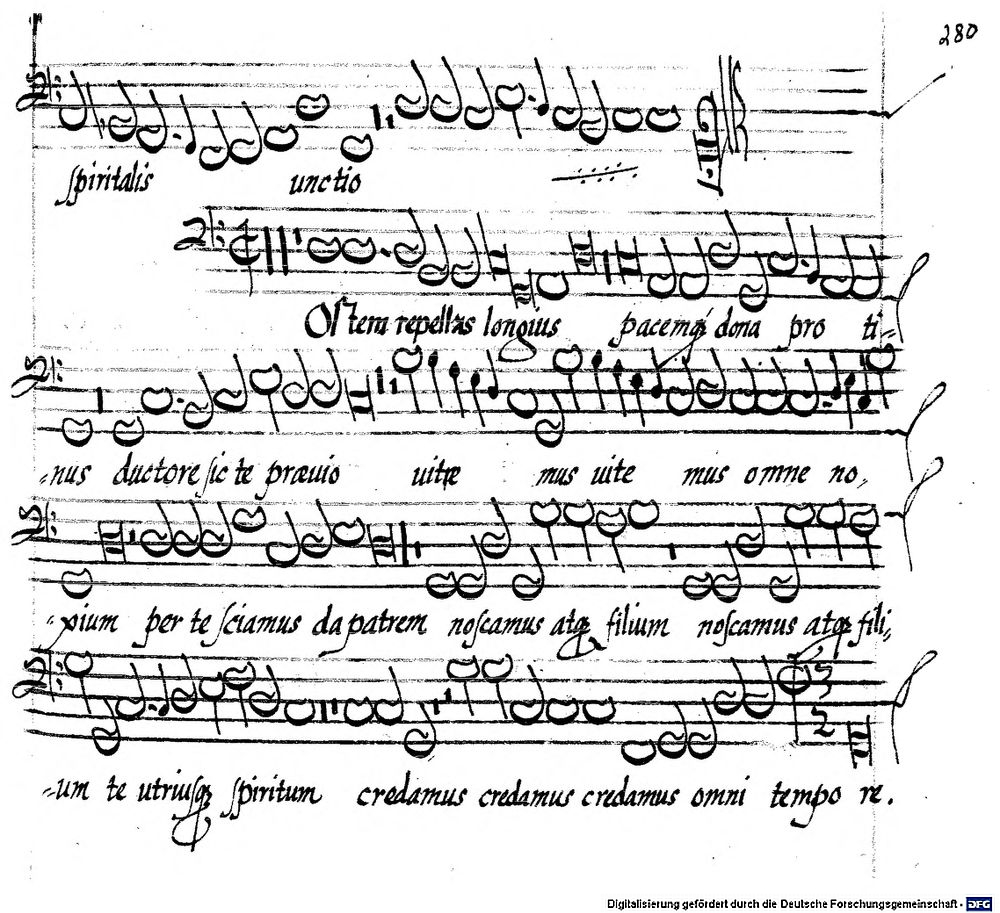 280
spiritalis unctio
Ostem repellas longius pacemq́ dona pro ti-
-nus ductore sic te præuio uite mus uite mus omne no-
-xium per te sciamus da patrem noscamus atq filium noscamus atq fili-
-um te utriusq spiritum credamus credamus credamus omni tempo re.
Digitalisierung gefördert durch die Deutsche Forschungsgemeinschaft - DFG